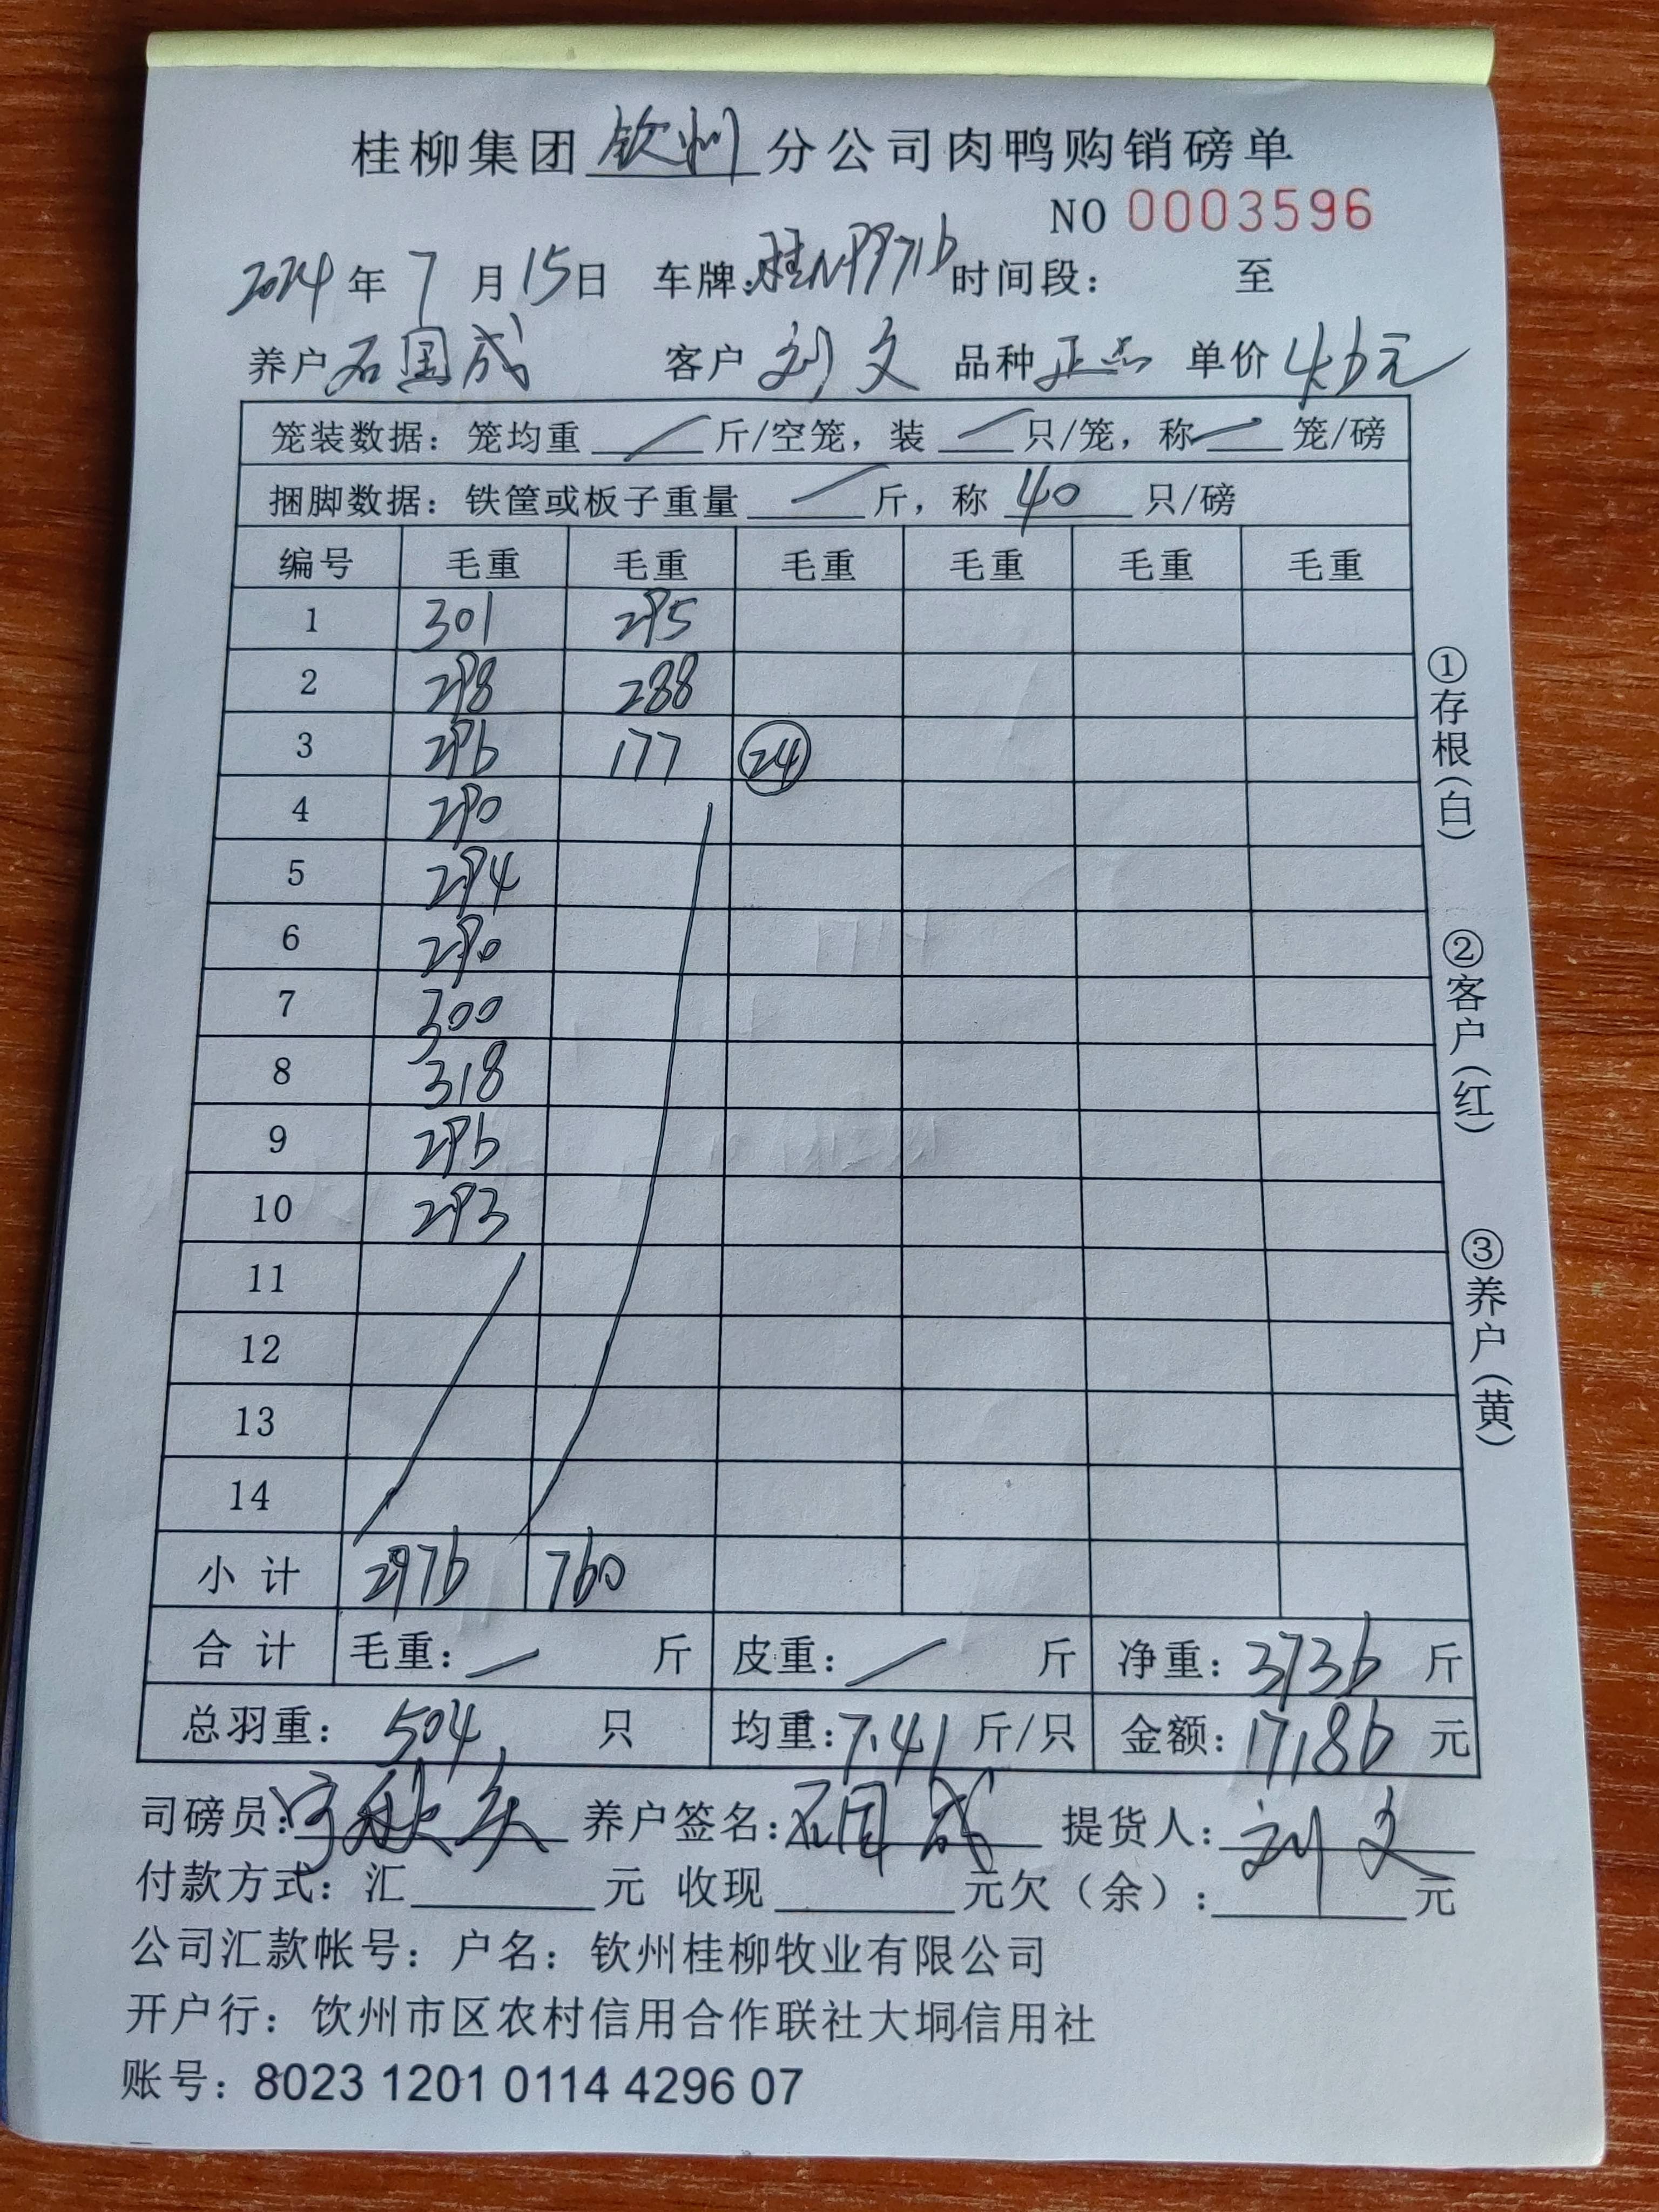 桂柳集团钦州分公司肉鸭购销磅单
NO 0003596
2024年7月15日 车牌:桂NP9716 时间段: 至
养户石国成 客户刘文 品种正品 单价4.6元
笼装数据:笼均重 斤/空笼,装 只/笼,称 笼/磅
捆脚数据:铁筐或板子重量 斤,称 40 只/磅
编号 毛重 毛重 毛重 毛重 毛重 毛重
1 301 295
2 298 288
3 296 177 24
4 290
5 294
6 290
7 300
8 318
9 296
10 293
11
12
13
14
小计 2976 760
合计 毛重: 斤 皮重: 斤 净重:3736 斤
总羽重:504 只 均重:7.41 斤/只 金额:17186 元
司磅员: 养户签名:石国成 提货人:刘文
付款方式:汇 元 收现 元欠(余): 元
公司汇款帐号:户名:钦州桂柳牧业有限公司
开户行:钦州市区农村信用合作联社大垌信用社
账号:8023 1201 0114 4296 07
①存根(白) ②客户(红) ③养户(黄)